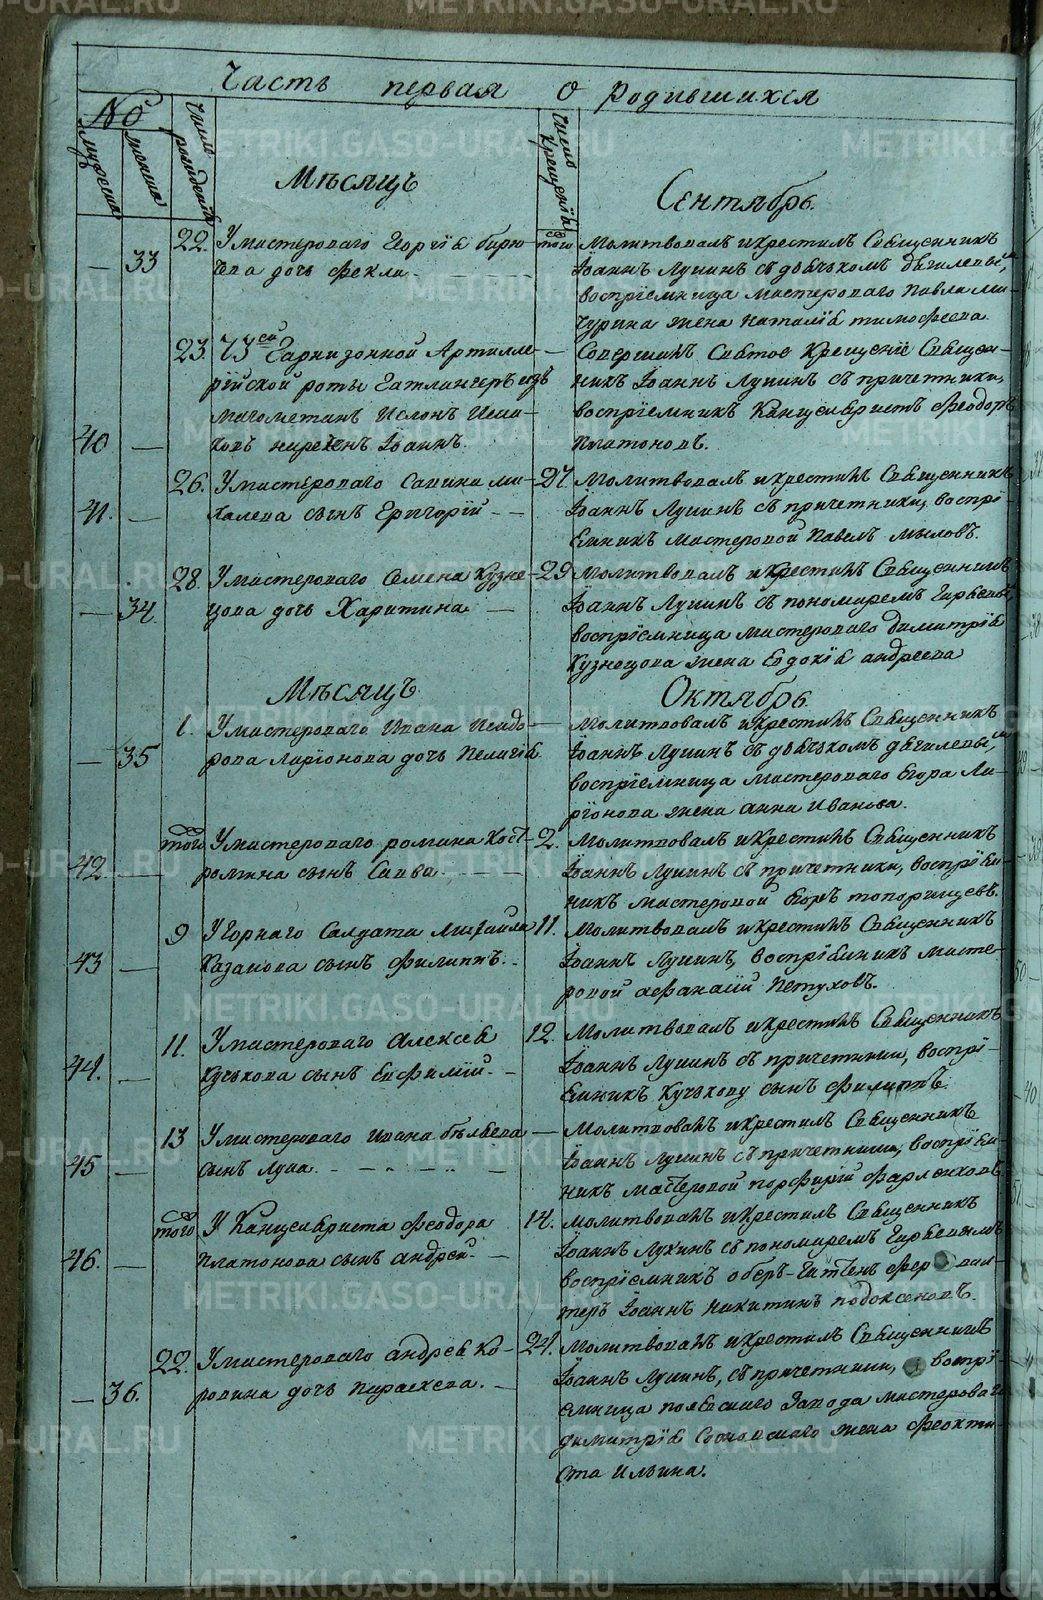 Часть первая О родившихся
№
мужеска
женска
число рождения
число крещения
Мѣсяцъ
Сентябрь.
33
22.
У мастероваго Георгія
дочь Фекла.
того
Молитвовалъ и крестилъ Священникъ
Іоаннъ Лукинъ съ дьячкомъ
воспріемница мастероваго Павла Ми-
чурина жена Наталія Тимофеева.
40
23.
73ей Гарнизонной Артилле-
рійской роты Гатлангеръ изъ
магометанъ
нареченъ Іоаннъ.
Совершилъ Святое Крещеніе Священ-
никъ Іоаннъ Лукинъ съ причетники,
воспріемникъ Канцеляристъ Феодоръ
Платоновъ.
41.
26.
У мастероваго Савина Ми-
халева сынъ Григорій
27.
Молитвовалъ и крестилъ Священникъ
Іоаннъ Лукинъ съ причетники, воспрі-
емникъ мастеровой Павелъ Мыловъ.
34.
28.
У мастероваго Семена Кузне-
цова дочь Харитина
29
Молитвовалъ и крестилъ Священникъ
Іоаннъ Лукинъ съ пономаремъ
воспріемница мастероваго Димитрія
Кузнецова жена Евдокія Андреева
Мѣсяцъ
Октябрь.
35
1.
У мастероваго Ивана Исидо-
рова Ларіонова дочь Пелагія
Молитвовалъ и крестилъ Священникъ
Іоаннъ Лукинъ съ дьячкомъ
воспріемница мастероваго Егора Ла-
ріонова жена Анна Иванова.
42
того
У мастероваго Романа Кост-
ромина сынъ Савва.
2.
Молитвовалъ и крестилъ Священникъ
Іоаннъ Лукинъ съ причетники, воспріем-
никъ мастеровой Егоръ Топорищевъ.
43
9
У Горнаго Солдата Михайла
Казакова сынъ Филиппъ.
11.
Молитвовалъ и крестилъ Священникъ
Іоаннъ Лукинъ, воспріемникъ масте-
ровой Афанасій Петуховъ.
44.
11.
У мастероваго Алексѣя
Кучкова сынъ Евфимій.
12.
Молитвовалъ и крестилъ Священникъ
Іоаннъ Лукинъ съ причетники, воспрі-
емникъ Кучкову сынъ Филиппъ.
45
13
У мастероваго Ивана Бѣляева
сынъ Лука.
Молитвовалъ и крестилъ Священникъ
Іоаннъ Лукинъ съ причетники, воспріем-
никъ мастеровой Порфирій
46.
того
У Канцеляриста Феодора
Платонова сынъ Андрей.
14.
Молитвовалъ и крестилъ Священникъ
Іоаннъ Лукинъ съ пономаремъ
воспріемникъ оберъ-
Іоаннъ Никитинъ Подоксеновъ.
36.
22.
У мастероваго Андрея Ко-
ровина дочь Параскева.
24.
Молитвовалъ и крестилъ Священникъ
Іоаннъ Лукинъ, съ причетники, воспрі-
емница завода мастероваго
Димитрія Сосновскаго жена Феокти-
ста Ильина.
METRIKI.GASO-URAL.RU